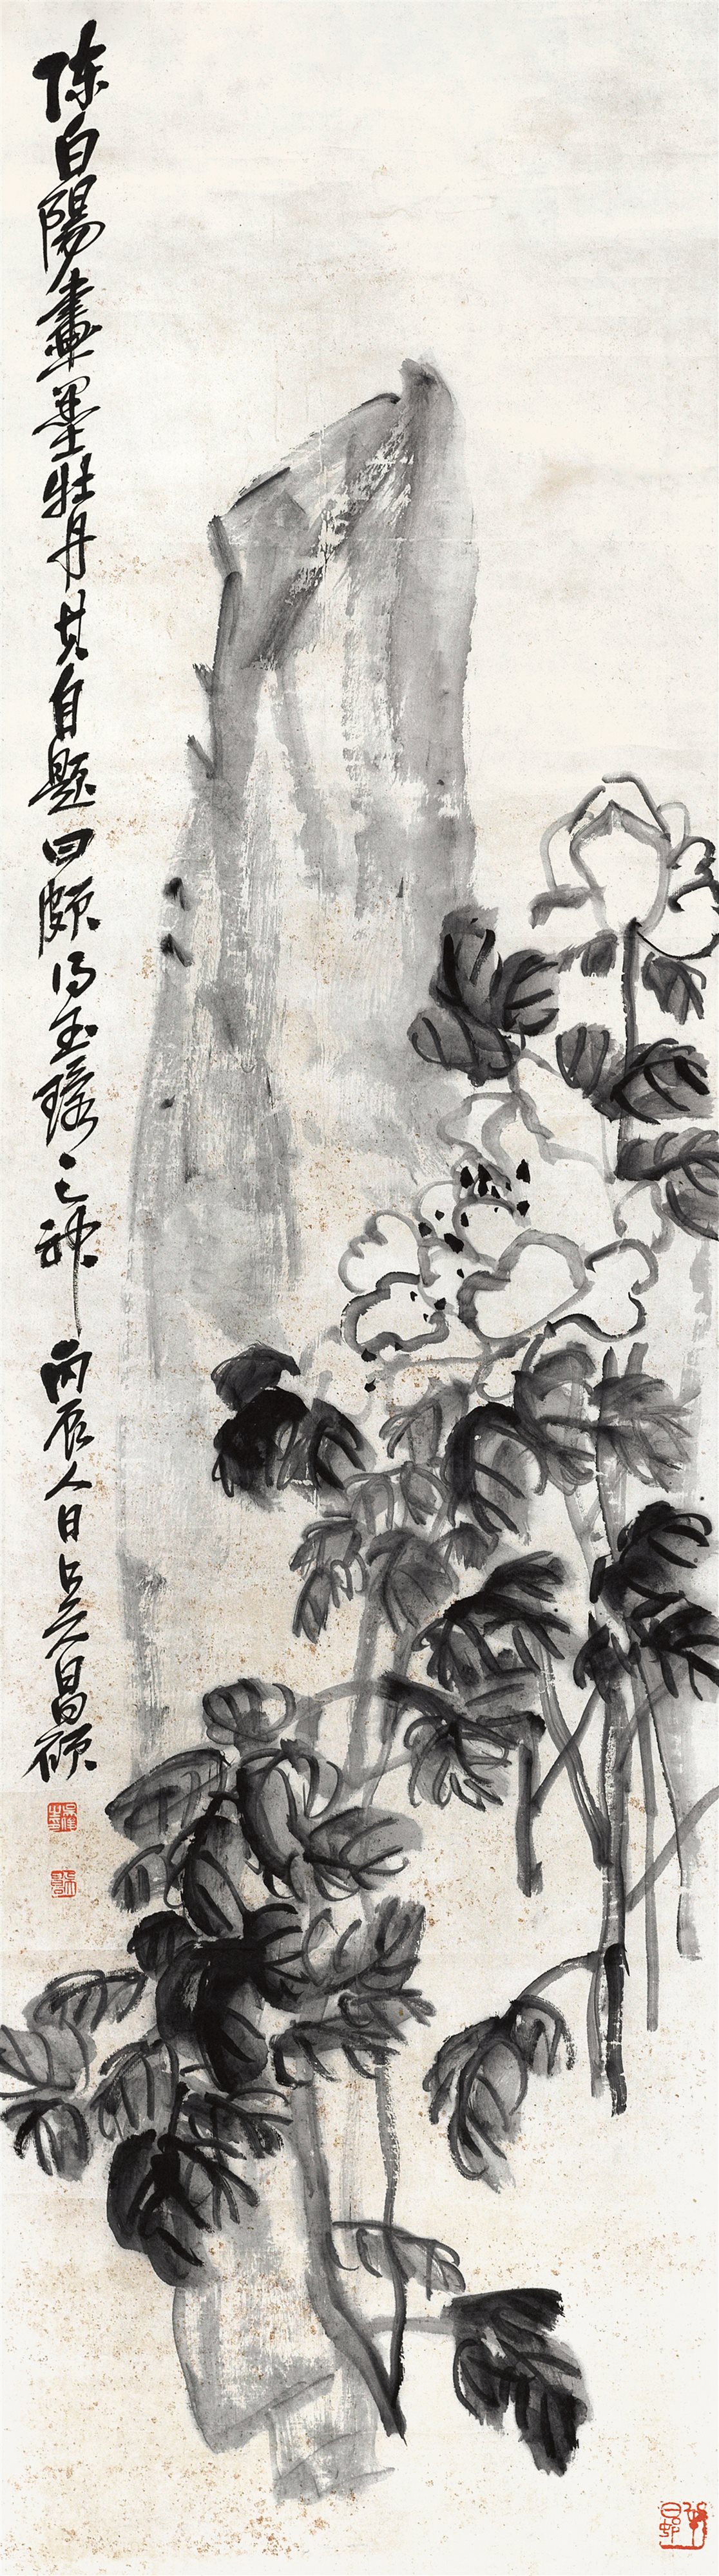 陈白陽畫墨牡丹其自題曰頗得玉環之神丙辰人日吳昌碩